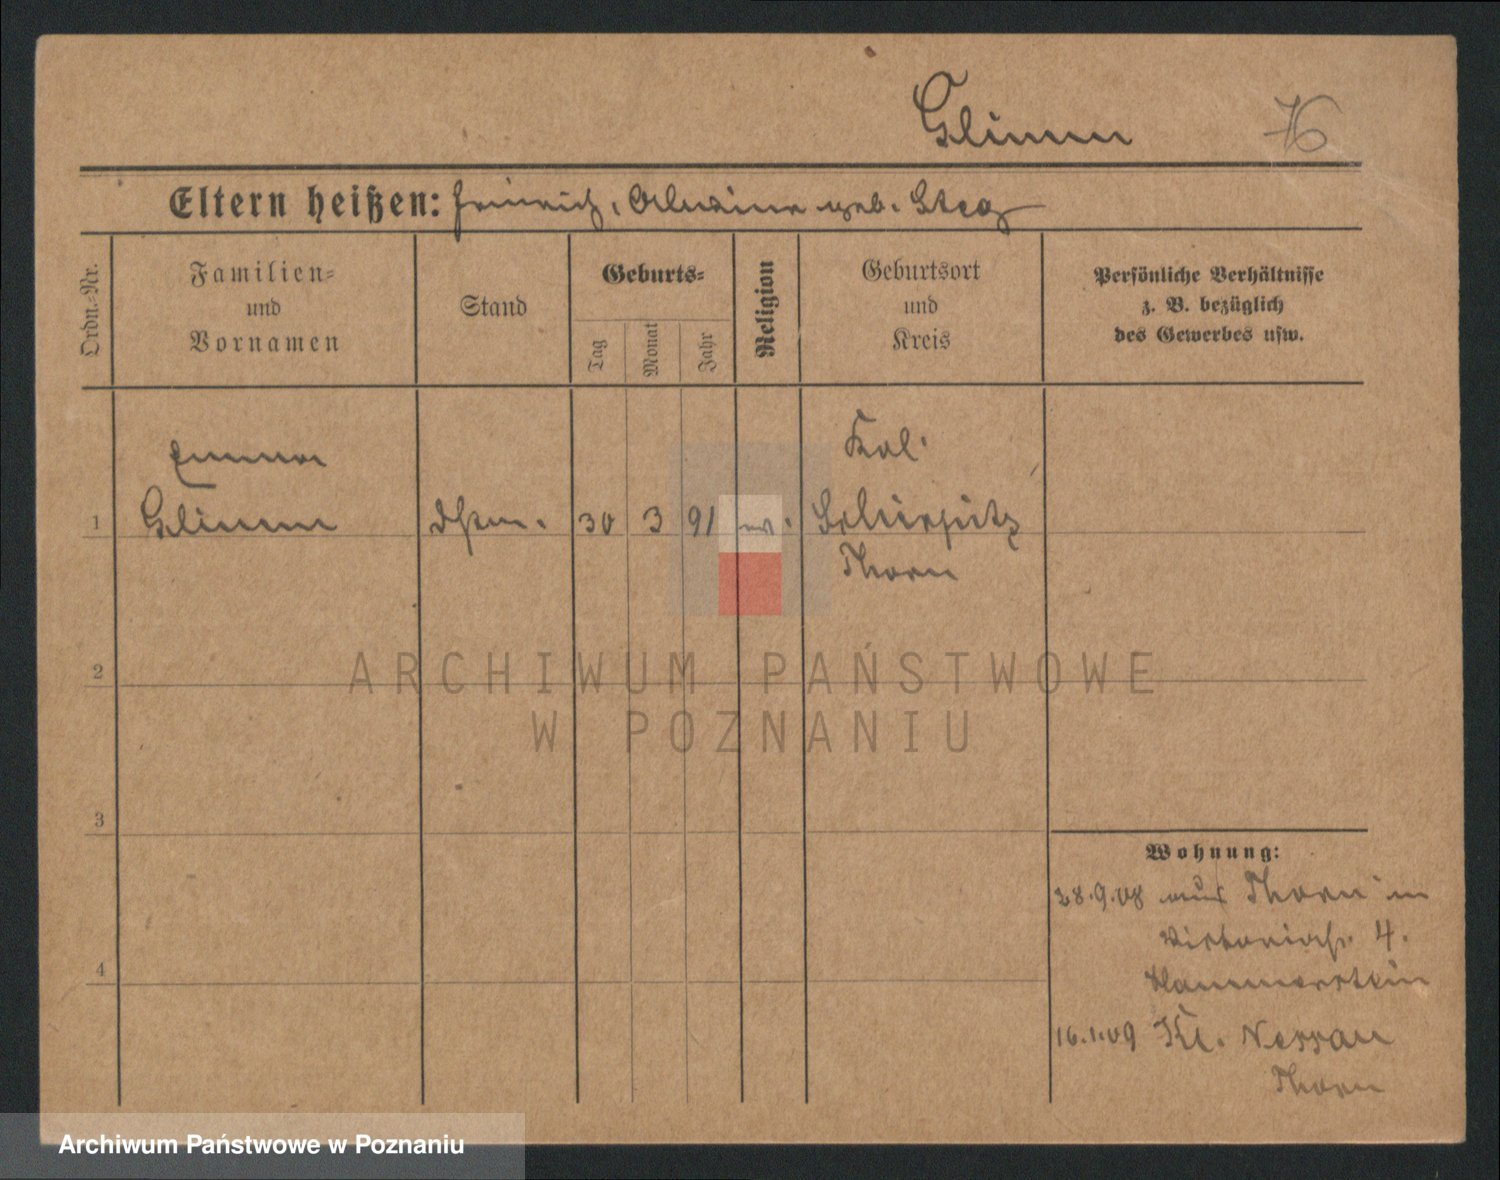 Glimm 76
Eltern heißen: Heinrich, Alwine geb. Steg
Ordn.-Nr.
Familien-
und
Vornamen
Stand
Geburts-
Tag
Monat
Jahr
Religion
Geburtsort
und
Kreis
Persönliche Verhältnisse
z. B. bezüglich
des Gewerbes usw.
Emma
Kol.
1 Glimm dstm. 30 3 91 ev. Schirpitz
Thorn
2
ARCHIWUM PAŃSTWOWE
W POZNANIU
3
Wohnung:
28.9.08 aus Thorn in
Viktoriastr. 4.
4
Hammerstein
16.1.09 Kl. Nessau
Thorn
Archiwum Państwowe w Poznaniu